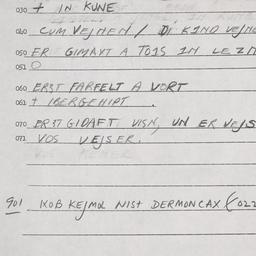 030 + IN KUNE
040 CUM VEJNEN / DI KIND VEJNE
050 ER GIMAXT A TOIS IN LEZN
051 O
060 ERST FARFELT A VORT
061 + IBERGEHIPT.
070 ERST GIDAFT VISN, UN ER VEJS
071 VOS VEJSER.
901 IKOB KEJMOL NIST DERMONCAX (022